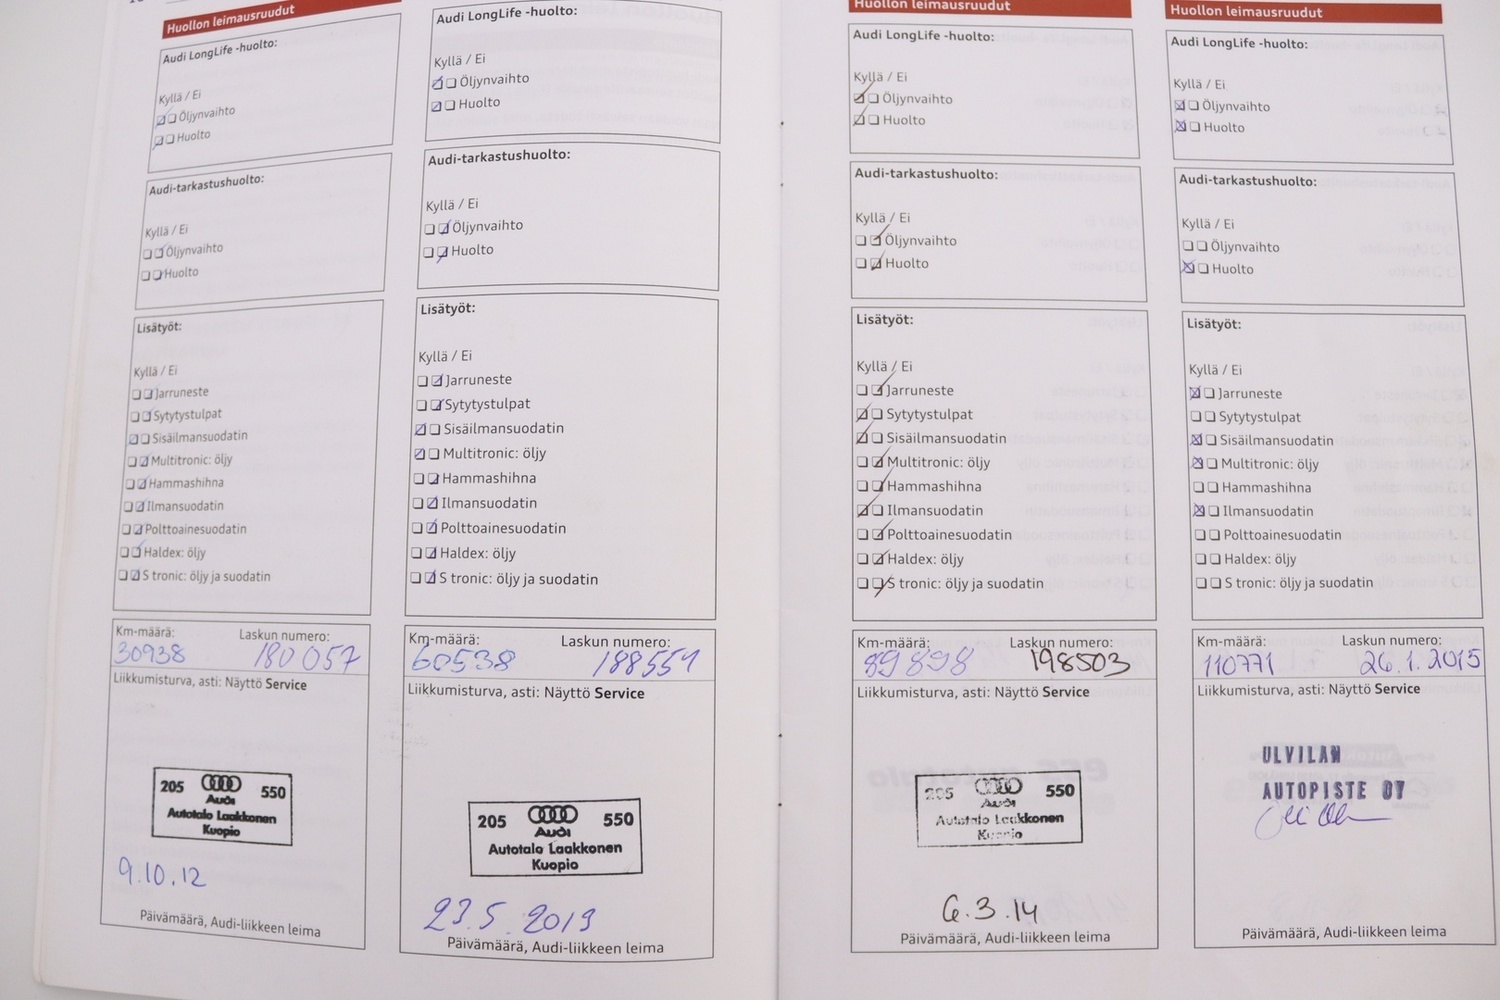 Huollon leimausruudut
Audi LongLife -huolto:
Kyllä / Ei
Öljynvaihto
Huolto
Audi-tarkastushuolto:
Kyllä / Ei
Öljynvaihto
Huolto
Lisätyöt:
Kyllä / Ei
Jarruneste
Sytytystulpat
Sisäilmansuodatin
Multitronic: öljy
Hammashihna
Ilmansuodatin
Polttoainesuodatin
Haldex: öljy
S tronic: öljy ja suodatin
Km-määrä: Laskun numero:
30938 180057
Liikkumisturva, asti: Näyttö Service
205 550
Audi
Autotalo Laakkonen
Kuopio
9.10.12
Päivämäärä, Audi-liikkeen leima
Audi LongLife -huolto:
Kyllä / Ei
Öljynvaihto
Huolto
Audi-tarkastushuolto:
Kyllä / Ei
Öljynvaihto
Huolto
Lisätyöt:
Kyllä / Ei
Jarruneste
Sytytystulpat
Sisäilmansuodatin
Multitronic: öljy
Hammashihna
Ilmansuodatin
Polttoainesuodatin
Haldex: öljy
S tronic: öljy ja suodatin
Km-määrä: Laskun numero:
60538 188551
Liikkumisturva, asti: Näyttö Service
205 550
Audi
Autotalo Laakkonen
Kuopio
23.5.2013
Päivämäärä, Audi-liikkeen leima
Huollon leimausruudut
Audi LongLife -huolto:
Kyllä / Ei
Öljynvaihto
Huolto
Audi-tarkastushuolto:
Kyllä / Ei
Öljynvaihto
Huolto
Lisätyöt:
Kyllä / Ei
Jarruneste
Sytytystulpat
Sisäilmansuodatin
Multitronic: öljy
Hammashihna
Ilmansuodatin
Polttoainesuodatin
Haldex: öljy
S tronic: öljy ja suodatin
Km-määrä: Laskun numero:
89898 198503
Liikkumisturva, asti: Näyttö Service
205 550
Audi
Autotalo Laakkonen
Kuopio
6.3.14
Päivämäärä, Audi-liikkeen leima
Huollon leimausruudut
Audi LongLife -huolto:
Kyllä / Ei
Öljynvaihto
Huolto
Audi-tarkastushuolto:
Kyllä / Ei
Öljynvaihto
Huolto
Lisätyöt:
Kyllä / Ei
Jarruneste
Sytytystulpat
Sisäilmansuodatin
Multitronic: öljy
Hammashihna
Ilmansuodatin
Polttoainesuodatin
Haldex: öljy
S tronic: öljy ja suodatin
Km-määrä: Laskun numero:
110771 26.1.2015
Liikkumisturva, asti: Näyttö Service
ULVILAN
AUTOPISTE OY
Päivämäärä, Audi-liikkeen leima